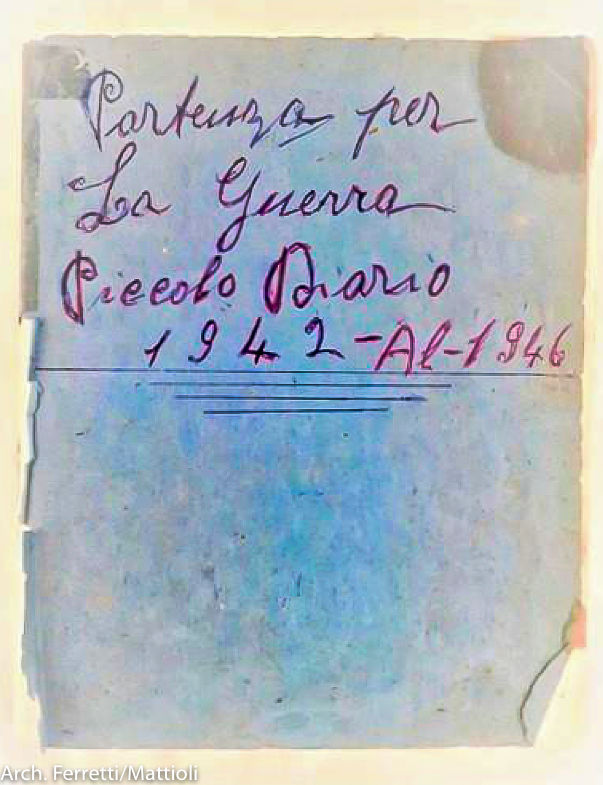 Partenza per
La Guerra
Piccolo Diario
1942-Al-1946
Arch. Ferretti/Mattioli